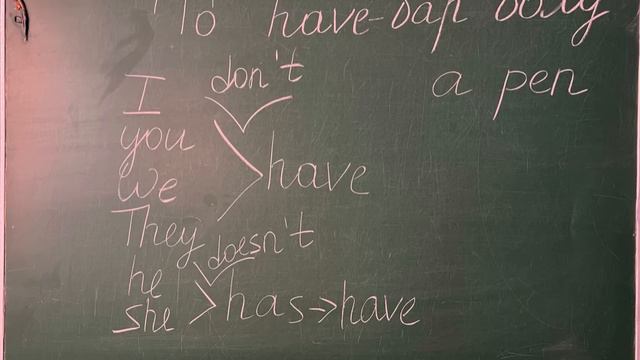 To have-бар болу
don't
I
a pen
you
we
have
They
doesn't
he
she
has⇒have